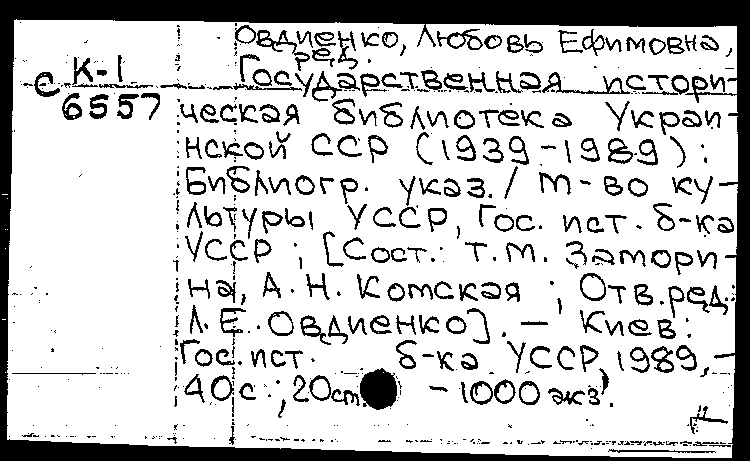 Овдиенко, Любовь Ефимовна,
ред.
С К-1
6557
Государственная истори-
ческая библиотека Украи-
нской ССР (1939-1989):
Библиогр. указ./ М-во ку-
льтуры УССР, Гос. ист. б-ка
УССР ; [Сост.: Т.М. Замори-
на, А.Н. Комская ; Отв.ред.
Л.Е. Овдиенко]. — Киев:
Гос.ист. б-ка УССР, 1989,-
40с.; 20см. -1000 экз.